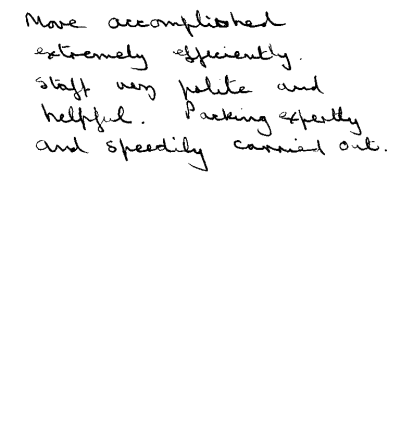 Move accomplished
extremely efficiently.
Staff very polite and
helpful. Packing expertly
and speedily carried out.